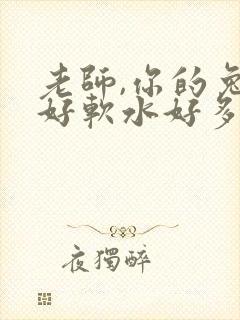 老師,你的兔
好軟水好多
夜獨醉